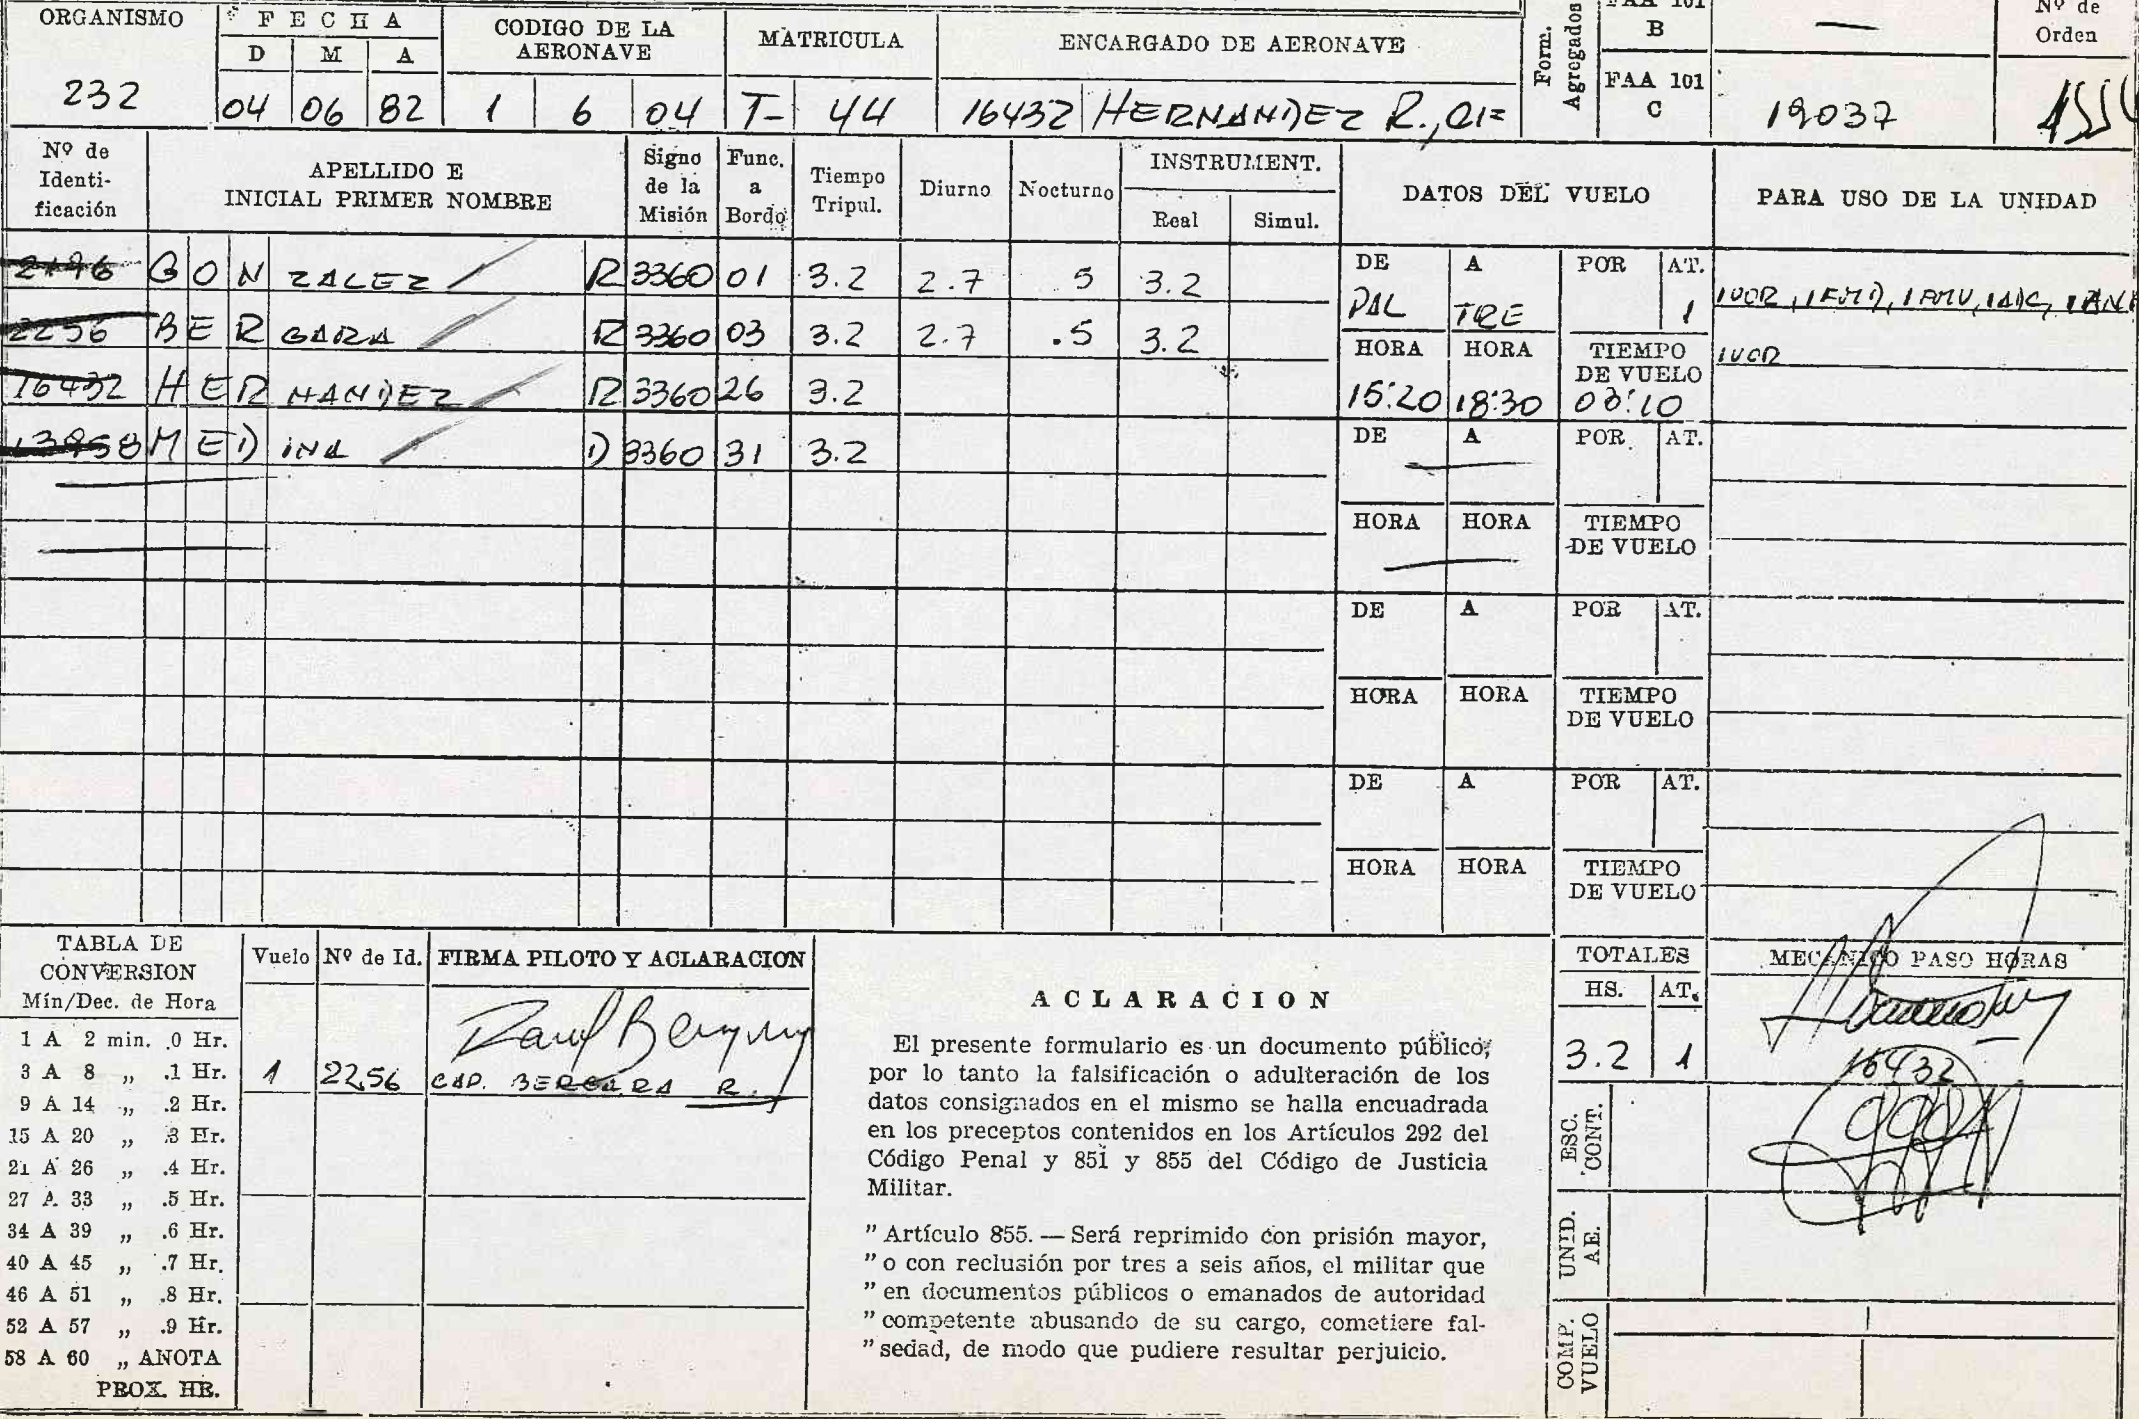 ORGANISMO FECHA CODIGO DE LA AERONAVE MATRICULA ENCARGADO DE AERONAVE Form. Agregados FAA 101 B — Nº de Orden
D M A
232 04 06 82 1 6 04 T- 44 16432 HERNANDEZ R. FAA 101 C 19037
Nº de Identificación APELLIDO E INICIAL PRIMER NOMBRE Signo de la Misión Func. a Bordo Tiempo Tripul. Diurno Nocturno INSTRUMENT. Real Simul. DATOS DEL VUELO PARA USO DE LA UNIDAD
GONZALEZ R 3360 01 3.2 2.7 .5 3.2
2256 BERGARA R 3360 03 3.2 2.7 .5 3.2
16432 HERNANDEZ R 3360 26 3.2
MEDINA D 3360 31 3.2
DE A POR AT.
PAL TRE 1 1 VOR,
HORA HORA TIEMPO DE VUELO 1 VOR
15:20 18:30 03:10
DE A POR AT.
HORA HORA TIEMPO DE VUELO
DE A POR AT.
HORA HORA TIEMPO DE VUELO
DE A POR AT.
HORA HORA TIEMPO DE VUELO
TABLA DE CONVERSION
Mín/Dec. de Hora
1 A 2 min. .0 Hr.
3 A 8 „ .1 Hr.
9 A 14 „ .2 Hr.
15 A 20 „ .3 Hr.
21 A 26 „ .4 Hr.
27 A 33 „ .5 Hr.
34 A 39 „ .6 Hr.
40 A 45 „ .7 Hr.
46 A 51 „ .8 Hr.
52 A 57 „ .9 Hr.
58 A 60 „ ANOTA
PROX. HR.
Vuelo Nº de Id. FIRMA PILOTO Y ACLARACION
1 2256 CAP. BERGARA R.
ACLARACION
El presente formulario es un documento público,
por lo tanto la falsificación o adulteración de los
datos consignados en el mismo se halla encuadrada
en los preceptos contenidos en los Artículos 292 del
Código Penal y 851 y 855 del Código de Justicia
Militar.
" Artículo 855. — Será reprimido con prisión mayor,
" o con reclusión por tres a seis años, el militar que
" en documentos públicos o emanados de autoridad
" competente abusando de su cargo, cometiere fal-
" sedad, de modo que pudiere resultar perjuicio.
TOTALES MECANICO PASO HORAS
HS. AT.
3.2 1 16432
ESC. CONT.
UNID. AE.
COMP. VUELO